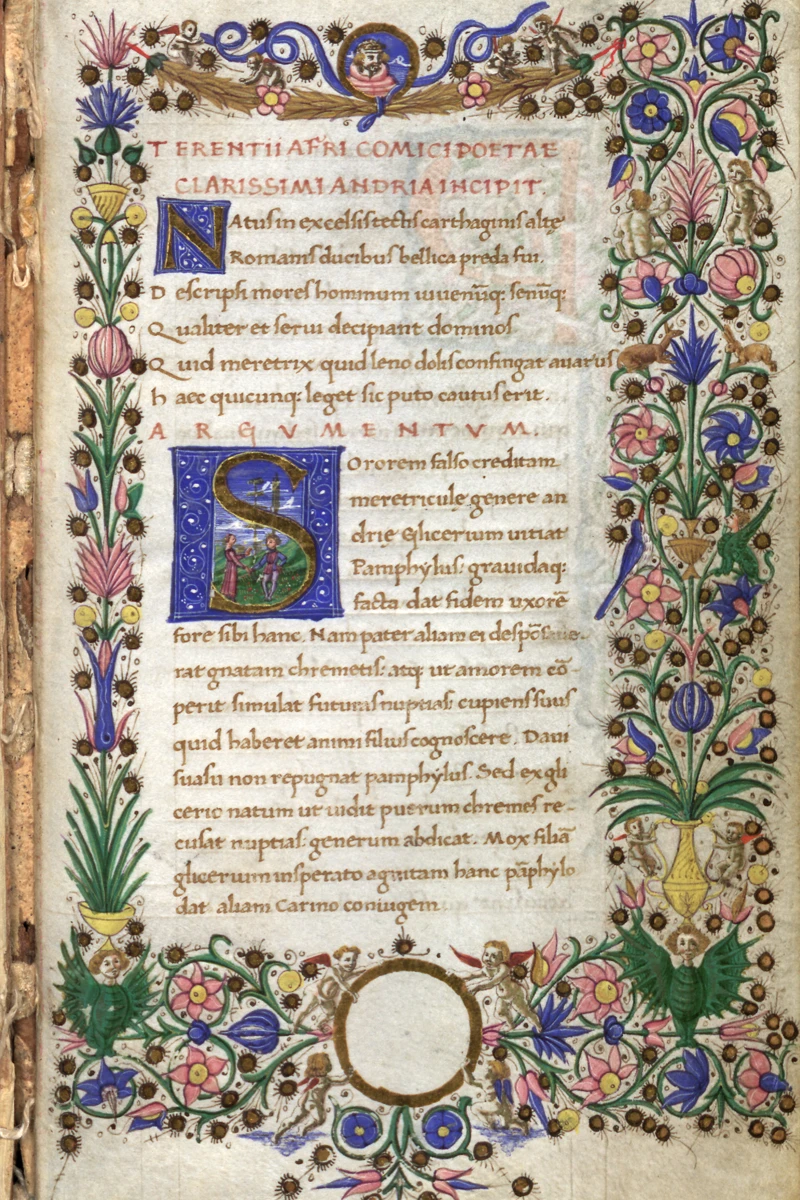 TERENTII AFRI COMICI POETAE
CLARISSIMI ANDRIA INCIPIT.
NAtus in excelsis tectis carthaginis altę
Romanis ducibus bellica preda fui.
Descripsi mores hominum iuuenūq; senūq;
Qualiter et serui decipiant dominos
Quid meretrix quid leno dolis confingat auarus
haec quicunq; leget sic puto cautus erit.
ARGVMENTVM.
SOrorem falso creditam
meretriculę genere an
drię Glicerium uitiat
Pamphylus: grauidaq;
facta dat fidem uxorē
fore sibi hanc. Nam pater aliam ei
rat gnatam chremetis: atq; ut amorem cō
perit simulat futuras nuptias: cupiens suus
quid haberet animi filius cognoscere. Daui
suasu non repugnat pamphylus. Sed ex gli
cerio natum ut uidit puerum chremes re-
cusat nuptias: generum abdicat. Mox filiā
glicerium insperato agnitam hanc pāphylo
dat aliam Carino coniugem